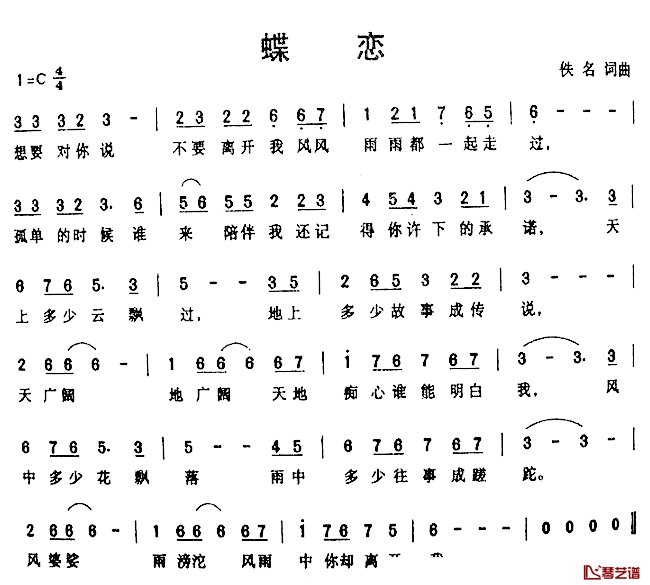 蝶 恋
1=C 4/4
佚名 词曲
3 3 3 2 3 - | 2 3 2 2 6 6 7 | 1 2 1 7 6 5 | 6 - - - |
想要 对你 说 不要 离开 我 风风 雨雨都 一起走 过,
3 3 3 2 3. 6 | 5 6 5 5 2 2 3 | 4 5 4 3 2 1 | 3 - 3. 3 |
孤单 的时 候 谁 来 陪伴 我 还记 得你许下的承 诺, 天
6 7 6 5. 3 | 5 - - 3 5 | 2 6 5 3 2 2 | 3 - - - |
上多少云 飘 过, 地上 多少故事成传 说,
2 6 6 6 - | 1 6 6 6 6 7 | 1 7 6 7 6 7 | 3 - 3. 3 |
天广阔 地广阔 天地 痴心谁能明白 我, 风
6 7 6 5. 3 | 5 - - 4 5 | 6 7 6 7 6 7 | 3 - 3 - |
中多少花 飘 落 雨中 多少往事成蹉 跎。
2 6 6 6 - | 1 6 6 6 6 7 | 1 7 6 7 5 | 6 - - - | 0 0 0 0 ‖
风婆娑 雨滂沱 风雨 中你却离
琴艺谱